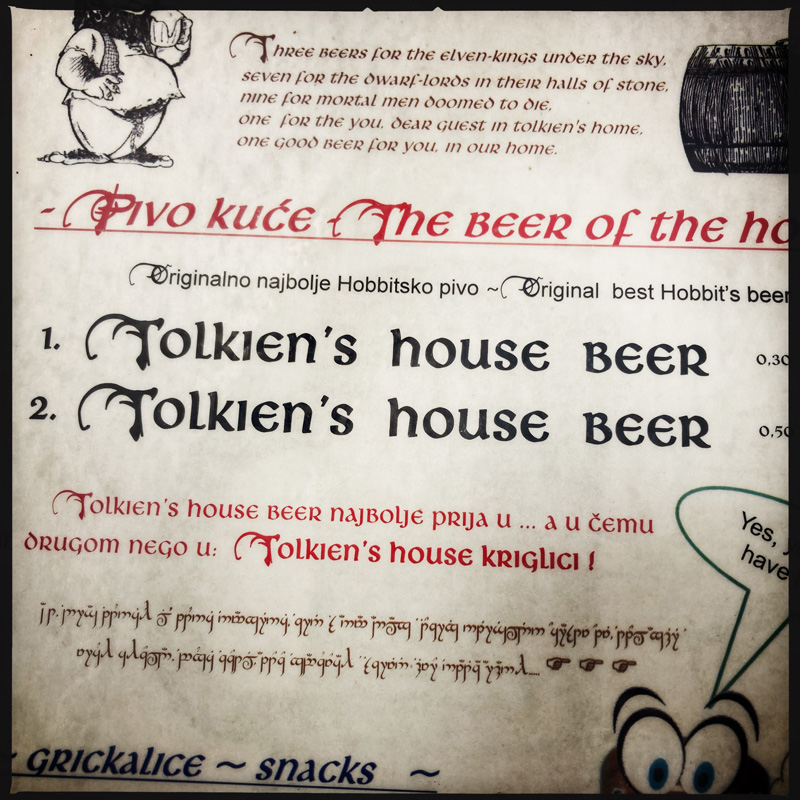 Three beers for the elven-kings under the sky,
seven for the dwarf-lords in their halls of stone,
nine for mortal men doomed to die,
one for the you, dear guest in tolkien's home,
one good beer for you, in our home.
- Pivo kuće - The beer of the ho
Originalno najbolje Hobbitsko pivo ~ Original best Hobbit's beer
1. Tolkien's house beer 0,30
2. Tolkien's house beer 0,50
Tolkien's house beer najbolje prija u ... a u čemu
drugom nego u: Tolkien's house kriglici !
Yes,
have
~ grickalice ~ snacks ~